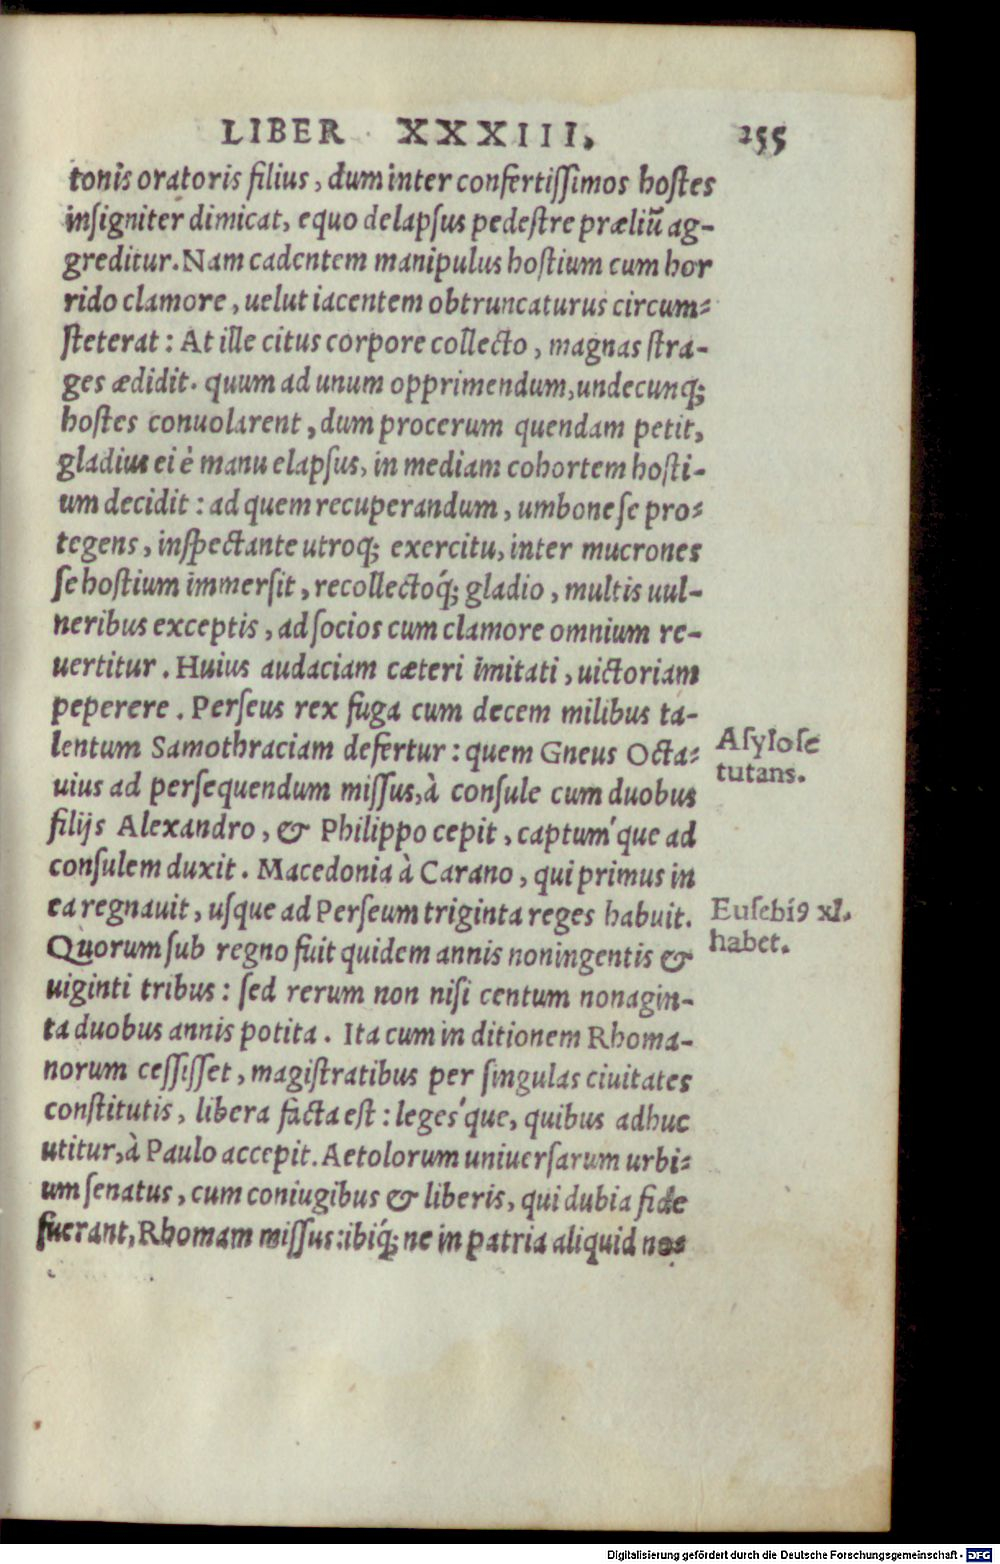 LIBER XXXIII. 255
tonis oratoris filius, dum inter confertissimos hostes
insigniter dimicat, equo delapsus pedestre præliũ ag-
greditur. Nam cadentem manipulus hostium cum hor
rido clamore, uelut iacentem obtruncaturus circum-
steterat: At ille citus corpore collecto, magnas stra-
ges ædidit. quum ad unum opprimendum, undecunq;
hostes conuolarent, dum procerum quendam petit,
gladius ei è manu elapsus, in mediam cohortem hosti-
um decidit: ad quem recuperandum, umbone se pro-
tegens, inspectante utroq; exercitu, inter mucrones
se hostium immersit, recollectoq́; gladio, multis uul-
neribus exceptis, ad socios cum clamore omnium re-
uertitur. Huius audaciam cæteri imitati, uictoriam
peperere. Perseus rex fuga cum decem milibus ta-
lentum Samothraciam defertur: quem Gneus Octa-
uius ad persequendum missus, à consule cum duobus
filijs Alexandro, & Philippo cepit, captum'que ad
consulem duxit. Macedonia à Carano, qui primus in
ea regnauit, usque ad Perseum triginta reges habuit.
Quorum sub regno fuit quidem annis noningentis &
uiginti tribus: sed rerum non nisi centum nonagin-
ta duobus annis potita. Ita cum in ditionem Rhoma-
norum cessisset, magistratibus per singulas ciuitates
constitutis, libera facta est: leges'que, quibus adhuc
utitur, à Paulo accepit. Aetolorum uniuersarum urbi-
um senatus, cum coniugibus & liberis, qui dubia fide
fuerant, Rhomam missus: ibiq́; ne in patria aliquid no-
Asylo se
tutans.
Eusebiꝰ xl.
habet.
Digitalisierung gefördert durch die Deutsche Forschungsgemeinschaft - DFG